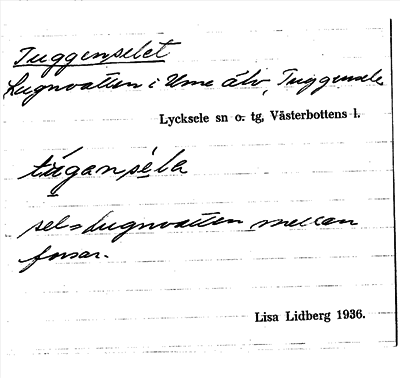 Tuggenselet
Lugnvatten i Ume älv, Tuggensele
Lycksele sn o. tg, Västerbottens l.
túgansḛla
sel = lugnvatten mellan
forsar.
Lisa Lidberg 1936.